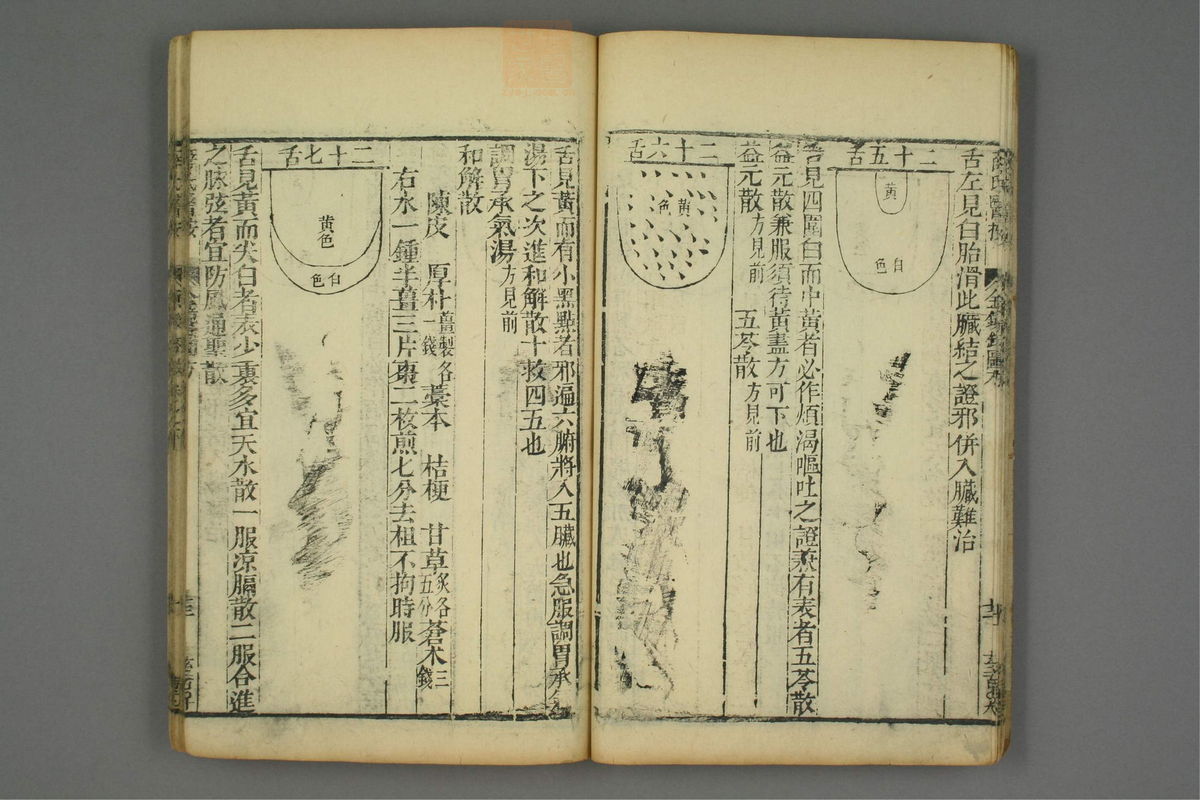 舌左見白胎滑此臟結之證邪併入臟難治
二十五舌
黄
白色
舌見四圍白而中黄者必作煩渴嘔吐之證兼有表者五苓散
益元散兼服須待黄盡方可下也
益元散方見前　五苓散方見前
二十六舌
黄色
舌見黄而有小黑點者邪遍六腑將入五臟也急服調胃承氣
湯下之次進和解散十救四五也
調胃承氣湯方見前
和解散
陳皮　厚朴薑製一錢各藁本　桔梗　甘草炙各五分蒼术三錢
右水一鍾半薑三片棗二枚煎七分去柤不拘時服
二十七舌
黄色
白色
舌見黄而尖白者表少裏多宜天水散一服凉膈散二服合進
之脉弦者宜防風通聖散